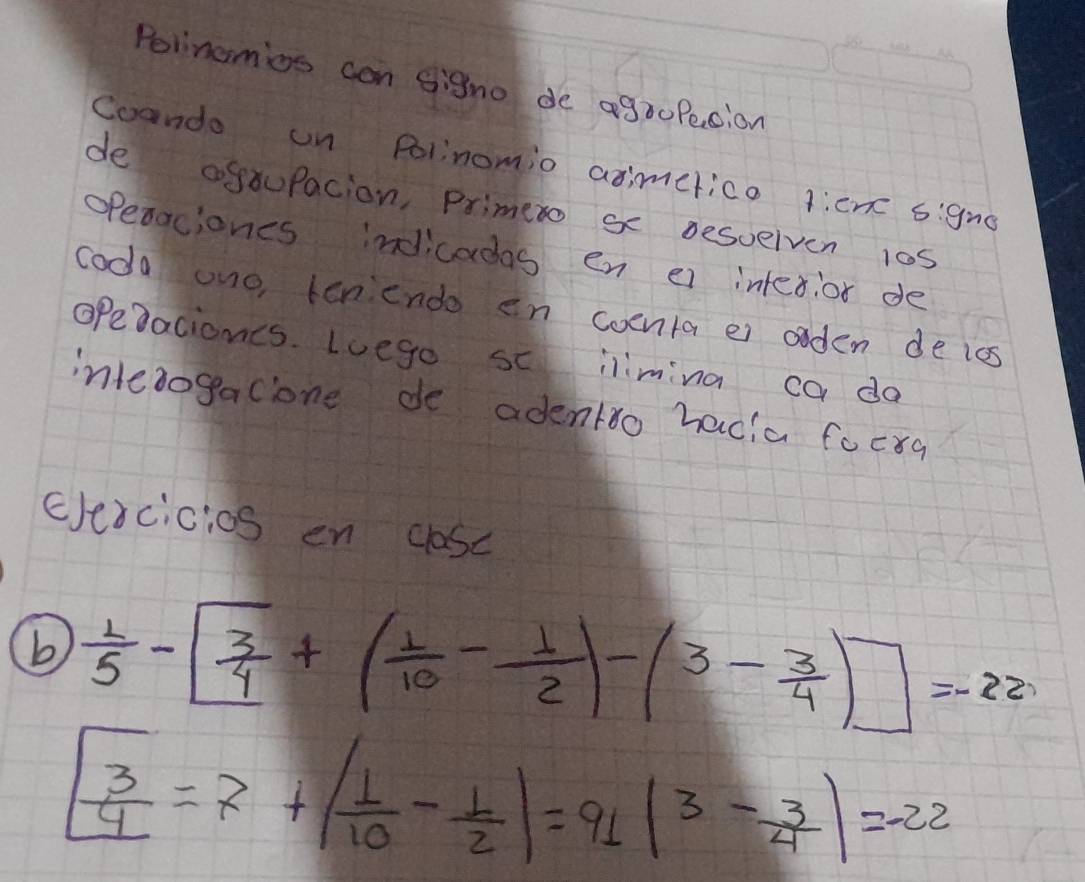 Polinomios con signo de agrupacion
Cuando un Polinomio arimetico tiene signo
de agrupacion, Primero se resuelven los
operaciones indicadas en el interior de
cada uno, teniendo en cuenta el orden de los
operaciones. Luego se ilimina ca da
interogacione de adentro hacia fuera
Ejercicios en clase
b 1/5 - [3/4 + (1/10 - 1/2) - (3 - 3/4)] = -22
[3/4 = 7 + (1/10 - 1/2) = 91 (3 - 3/4) = -22